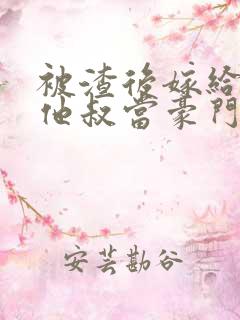 被渣後嫁給
他叔當豪門
安芸勘谷